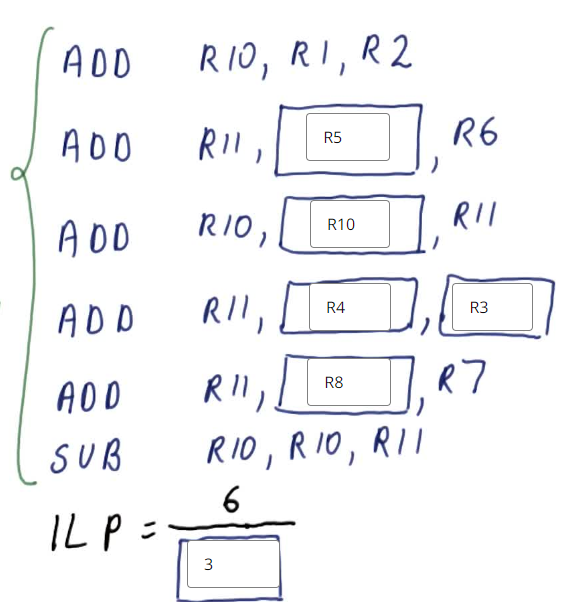 ADD R10, R1, R2
ADD R11, R5, R6
ADD R10, R10, R11
ADD R11, R4, R3
ADD R11, R8, R7
SUB R10, R10, R11
6
ILP =
3